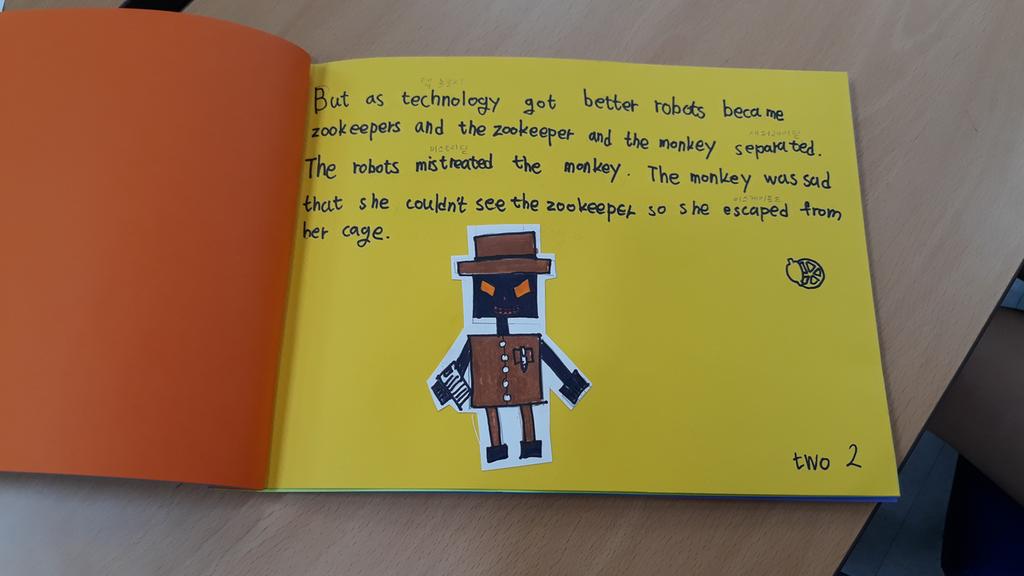 But as technology got better robots became
zookeepers and the zookeeper and the monkey separated.
The robots mistreated the monkey. The monkey was sad
that she couldn't see the zookeeper so she escaped from
her cage.
two 2